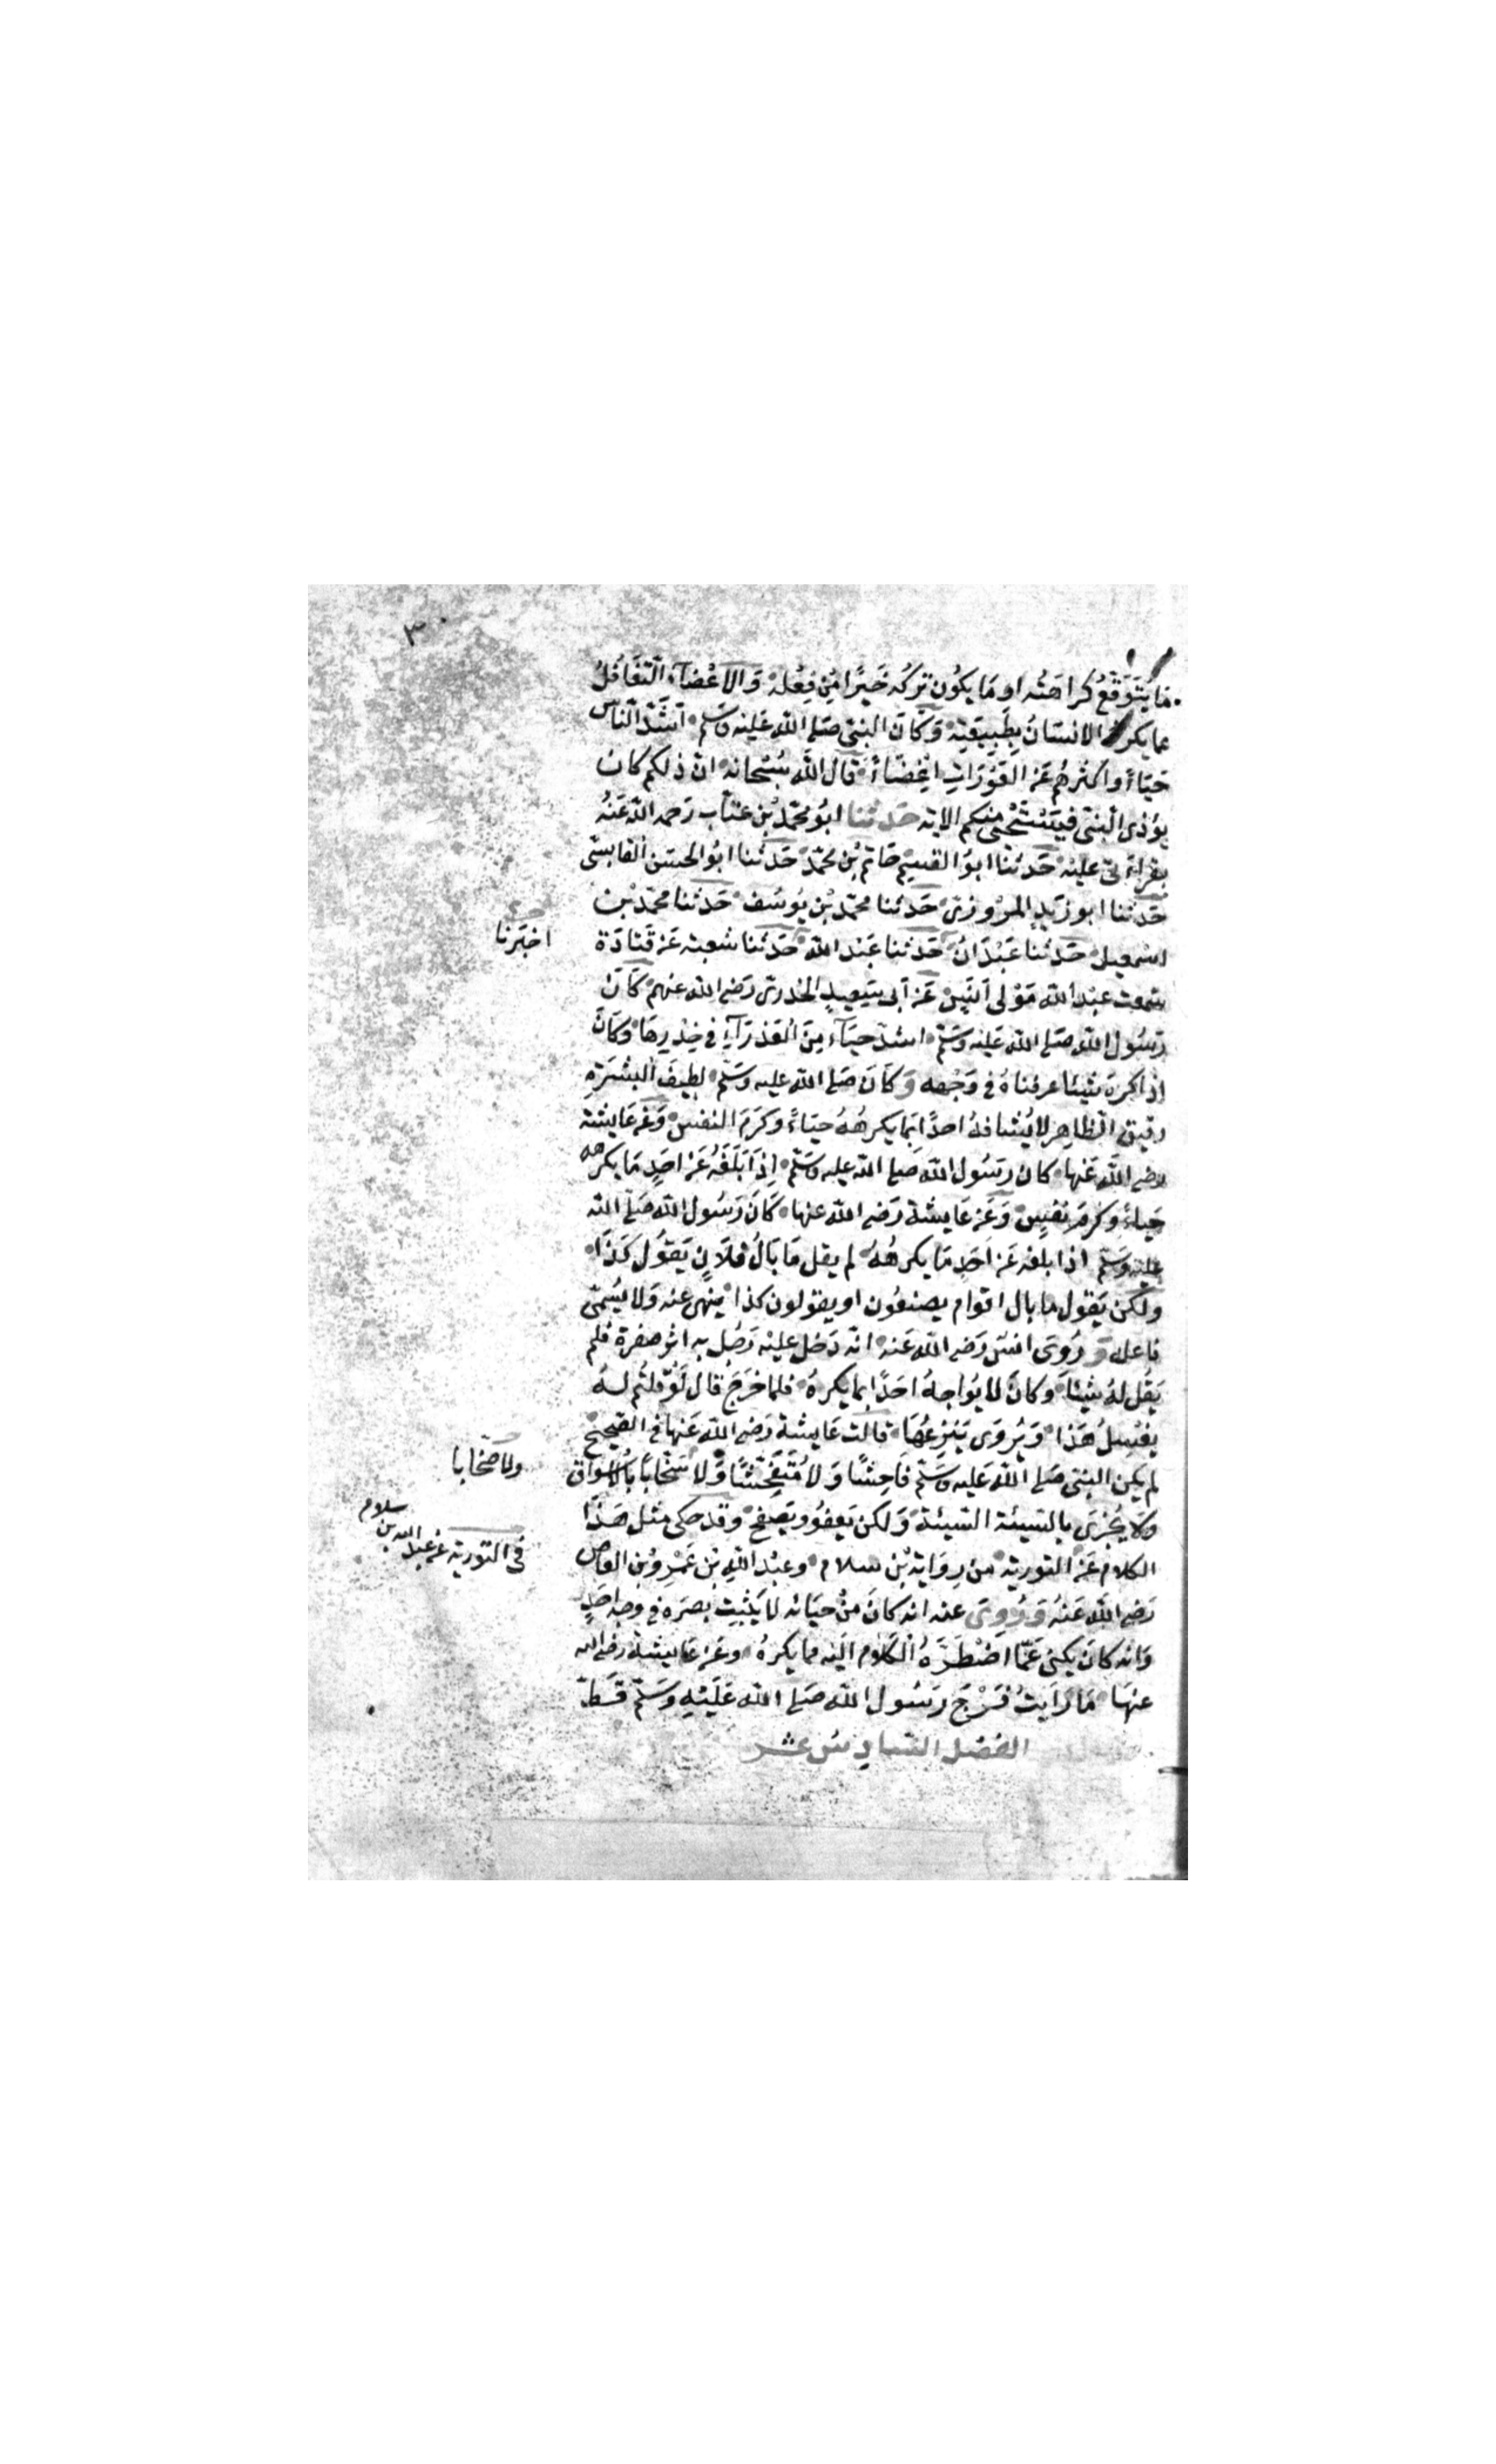 ٣٠
ما يُتَوَقَّعُ كراهتُه او مَا يكُون تركُه خَيرًا مِن فِعْلهِ وَالاغْضآء التّغَافُلُ
عما يكرهُ الانسَانُ بِطَبِيعَتِه وَكانَ النبى صَلى الله عَليْه وَسَلم اشَدّ الناس
حَيَاءً واكثرهُم عَن العَوْرَاتِ اِغضَاءً قال الله سُبْحَانه ان ذلكم كان
يؤذى النبىّ فيَسْتَحْيِى منكم الاية حَدثنا ابُو محَمّد بْن عتاب رَحمه الله عَنهُ
بقراءَتىِ عليْه حَدثنا ابوُ القسِم حَاتم بْن محَمّد حَدثنا ابُو الحسَن القابسّى
حَدثنا ابو زَيدٍ المرْوَزىّ حَدثنا محمّد بْن يُوسُف حَدثنا محمّد بْن
اسْمعيل حَدثنا عَبْدَانُ حَدثنا عَبْد الله حَدثنا شعبة عَن قَتادَة
اخبَرنا
سَمِعت عبْد الله مَوْلى اَنَسٍ عَن اَبى سَعِيدٍ الخدرىّ رَضى الله عنهم كانَ
رَسُول الله صَلى الله عَليْه وَسَلم اشدّ حَيَآء مِنَ العَذرَآءِ فى خِدْرِهَا وَكانَ
اِذا كرهَ شَيْئا عرفناهُ فى وَجْهه وَكَانَ صَلى الله عليه وَسَلم لطيفَ البشَرَةِ
رقيق الظاهِر لا يُشافهُ احدًا بمَا يكرهُهُ حيَاءً وكرَمَ النفس وَعَن عَايشة
رضى الله عَنها كان رَسُول الله صَلى الله عليه وسَلم اِذَا بَلَغَهُ عَن احَدٍ مَا يكرهه
حَياءً وكرمَ نفسٍ وَعَن عَايشة رَضى الله عنها كَانَ رَسُول الله صَلى الله
عليْه وَسَلم اذا بلغه عَن اَحَدٍ مَا يكرهُهُ لم يقل مَا بَالُ فلاَنٍ يَقوُل كَذَا
ولكن يَقول ما بال اقوام يصنعُون او يقولون كذا ينهَى عنه وَلا يُسَمّى
فاعله وَ رُوىَ انس رَضى الله عَنه انه دَخل عليْه رَجُل به اثر صفرة فلم
يَقُل لهُ شيْئاً وكانَ لا يُوَاجهُ احَدًا بما يكرهُ فلما خرَجَ قال لَوْ قلتُم لهُ
يَغسِلُ هَذا وَيُروَى يَنزِعُهَا قالت عَايشة رَضى الله عَنها فى الصَّحيح
لم يَكن النبى صَلى الله عَليه وَسَلم فاحِشًا وَلا مُتَفَحِّشًا وَلا سَخّابًا بالاسْواق
ولا صخابا
وَلا يُجزى بالسَّيئة السَّيئة وَلكن يَعفُو وَيَصفح وَقد حكى مثل هَذَا
الكلام عَن التورية من رِوَاية بْن سلام وعبْد الله بْن عَمْرِو بْن العَاصِ
فى التورية عن عبد الله بن سلام
رَضى الله عَنهُ وَرُوىَ عنه انه كانَ منْ حيَائه لا يُثبِت بصَرَه فى وجه احَدٍ
وَانه كانَ يكنى عَمّا اضْطَرّهُ الكلام اليْه مما يكرهُ وعَن عَايشة رَضى الله
عنهَا مَا رَايتُ فَرْجَ رَسُول الله صَلى الله عَلَيْهِ وَسَلم قَط
الفصْل السّادِسْ عشر